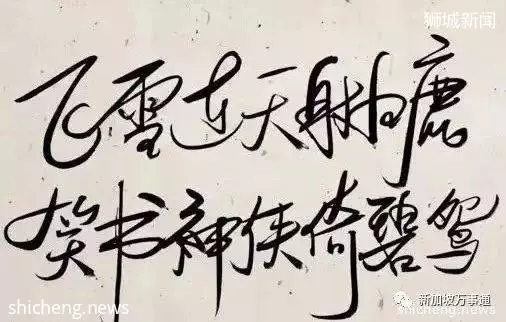 狮城新闻
飞雪连天射白鹿
笑书神侠倚碧鸳
shicheng.news
新加坡万事通
shicheng.news